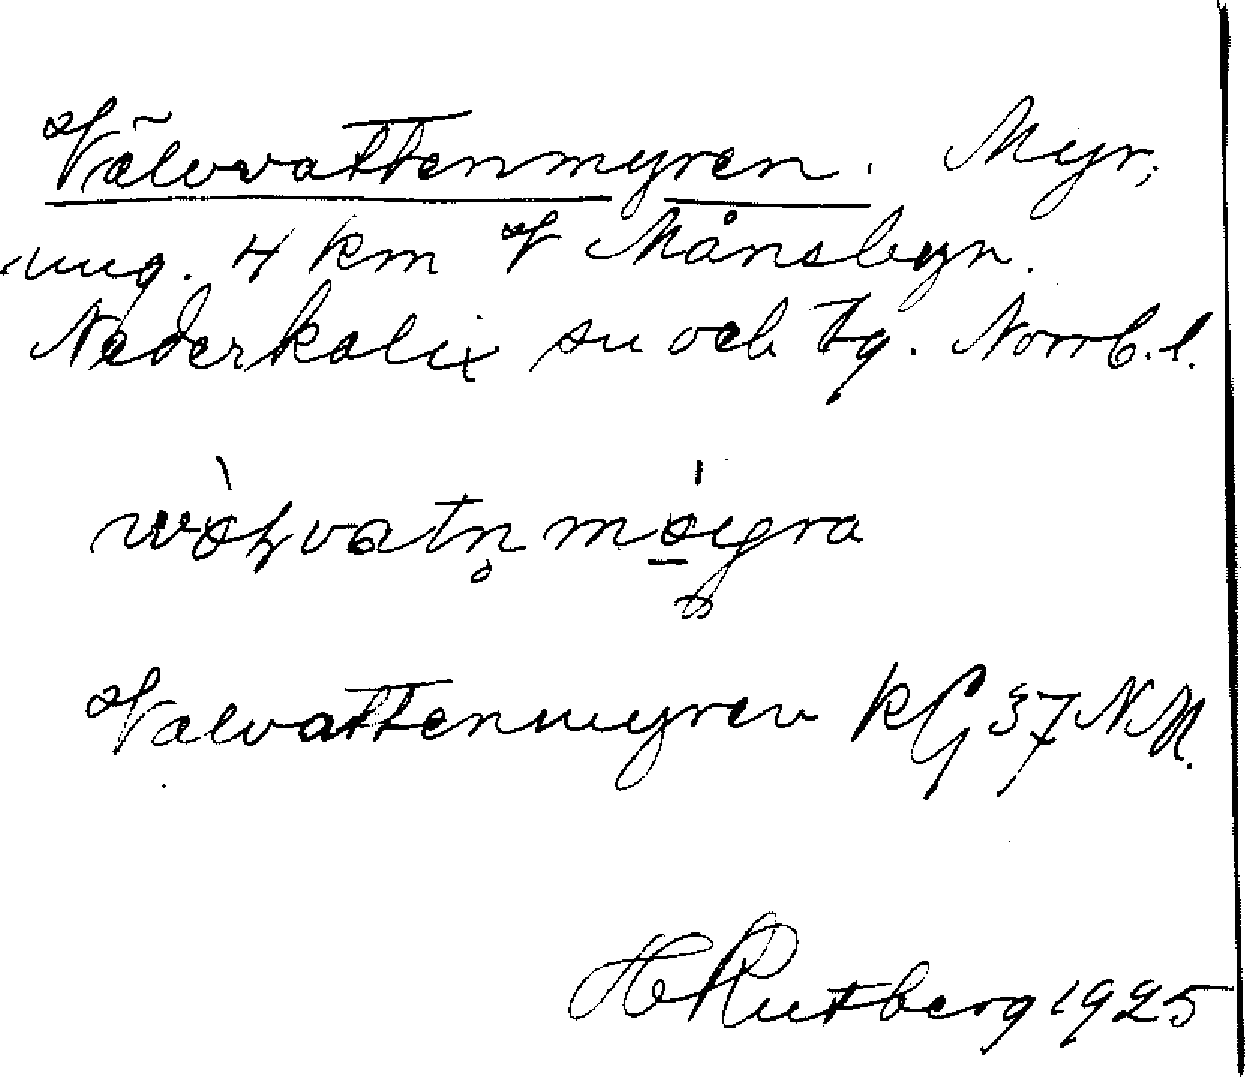 Välvvattenmyren. Myr,
ung. 4 km V Månsbyn.
Nederkalix sn och tg. Norrb. l.
Valvattenmyren RG 37 NM.
H Rutberg 1925